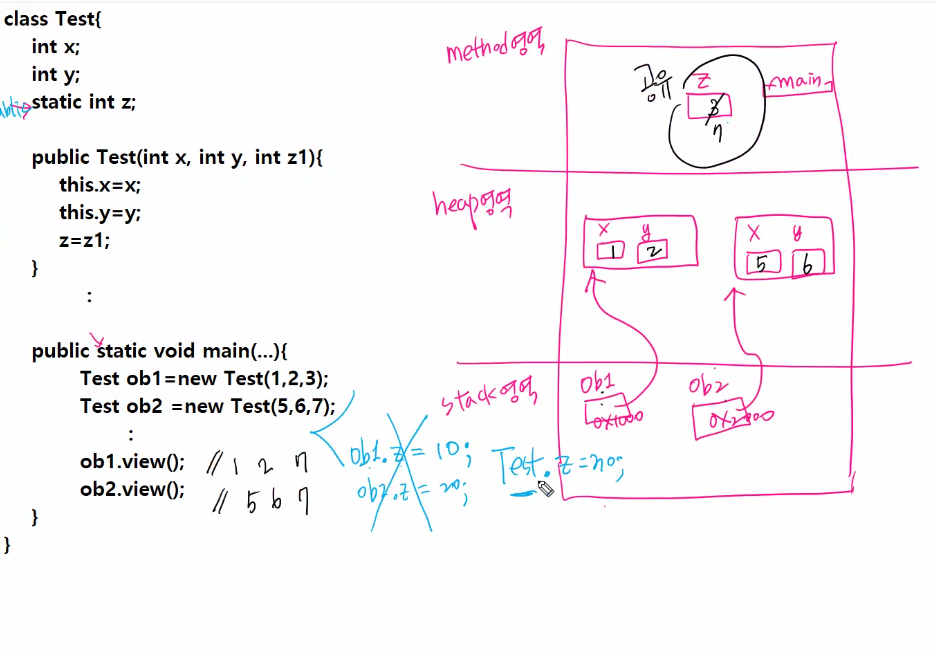 class Test{
int x;
int y;
static int z;
public Test(int x, int y, int z1){
this.x=x;
this.y=y;
z=z1;
}
:
public static void main(...){
Test ob1=new Test(1,2,3);
Test ob2 =new Test(5,6,7);
:
ob1.view(); // 1 2 7
ob2.view(); // 5 6 7
}
}
ob1.z = 10;
ob2.z = 20;
Test.z = 20;
method영역
공유
z
3
7
main
heap영역
x y
1 2
x y
5 6
stack영역
ob1
0x1000
ob2
0x2000